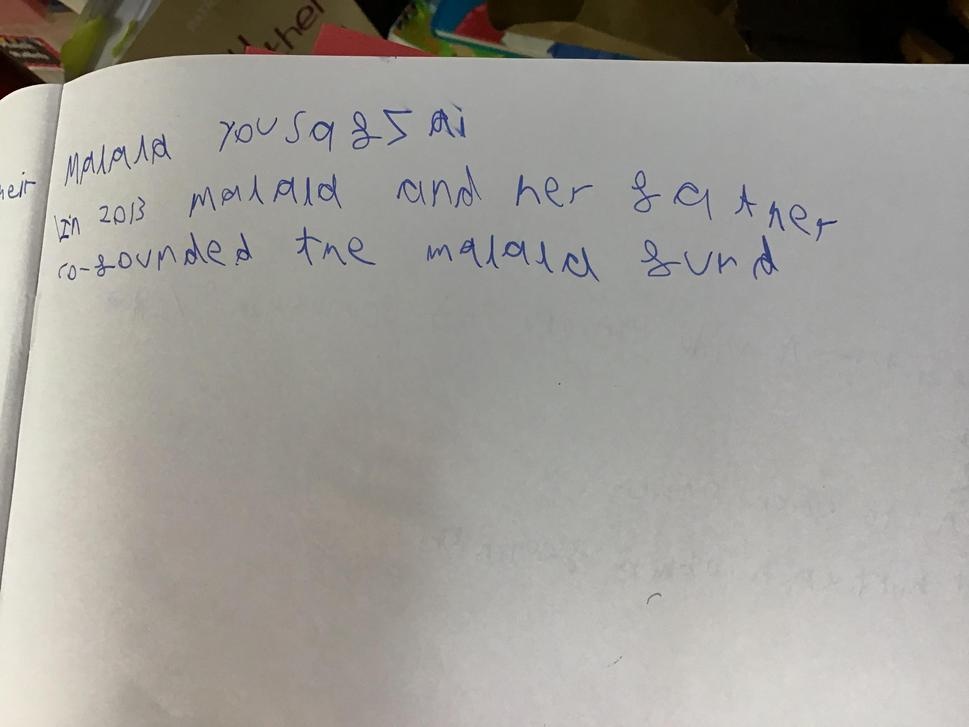 ther
heir
Malala Yousafzai
In 2013 malala and her father
co-founded the malala fund